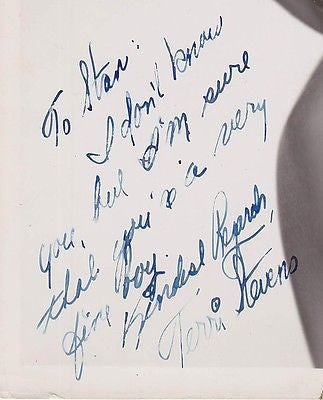 To Stan:
I don't know
you, but I'm sure
that you're a very
fine boy.
Kindest Regards,
Terri Stevens